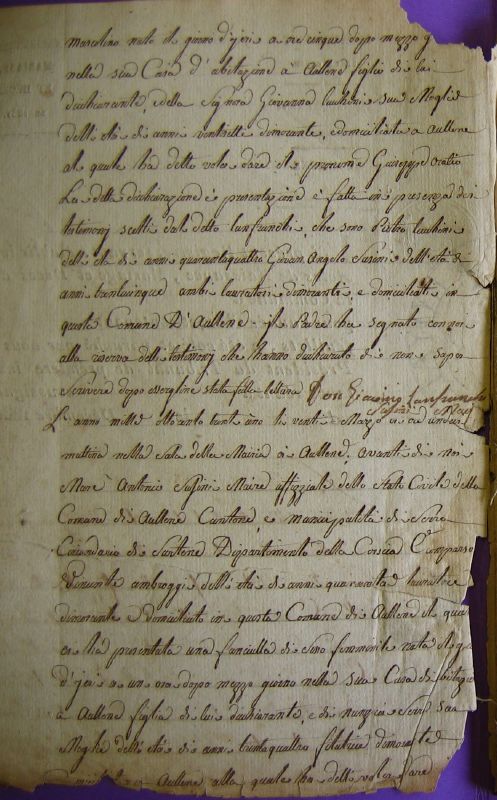 mascolino nato il giorno d'jeri a ore cinque doppo mezzo g
nella sua Casa d'abitazione a Aullene figlio di lui
dichiarante, e della Signora Giovanna Lucchini sua Moglie
dell'età di anni ventisette dimorante, e domiciliata a Aullene
al quale ha detto voler dare il prenome Giuseppe Orazio
La detta dichiarazione e presentazione è fatta in presenza dei
testimonj scelti dal detto Lanfranchi, che sono Pietro Lucchini
dell'età di anni quarantaquattro Giovan Angelo Susini dell'età di
anni trentacinque ambi lavoratori dimoranti, e domiciliati in
questa Comune D'Aullene. Il Padre ha segnato con noi
alla riserva delli testimonj che hanno dichiarato di non saper
scrivere dopo essergline stata fatta lettura Don Giacomo Lanfranchi
Susini Maire
L'anno mille otto cento undici li venti Marzo a ore undici
mattina nella Sala della Mairia di Aullene. avanti di noi
Marc' Antonio Susini Maire uffizziale dello Stato Civile della
Comune di Aullene Cantone, e municipalità di Serra
Circondario di Sartene Dipartimento della Corsica è Comparso
ambroggi dell'età di anni quaranta lavoratore
dimorante e domiciliato in questa Comune di Aullene il qua
ci ha presentata una fanciulla di sesso femminile nata il gio
d'jeri a un ora doppo mezzo giorno nella sua Casa d'abitazio
a Aullene figlia di lui dichiarante, e di Nunzia sua
Moglie dell'età di anni trentaquattro filatrice dimorante
Aullene alla quale ha detto voler dare